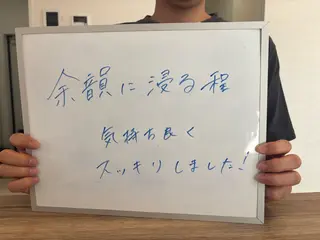 余韻に浸る程
気持ち良く
スッキリしました!